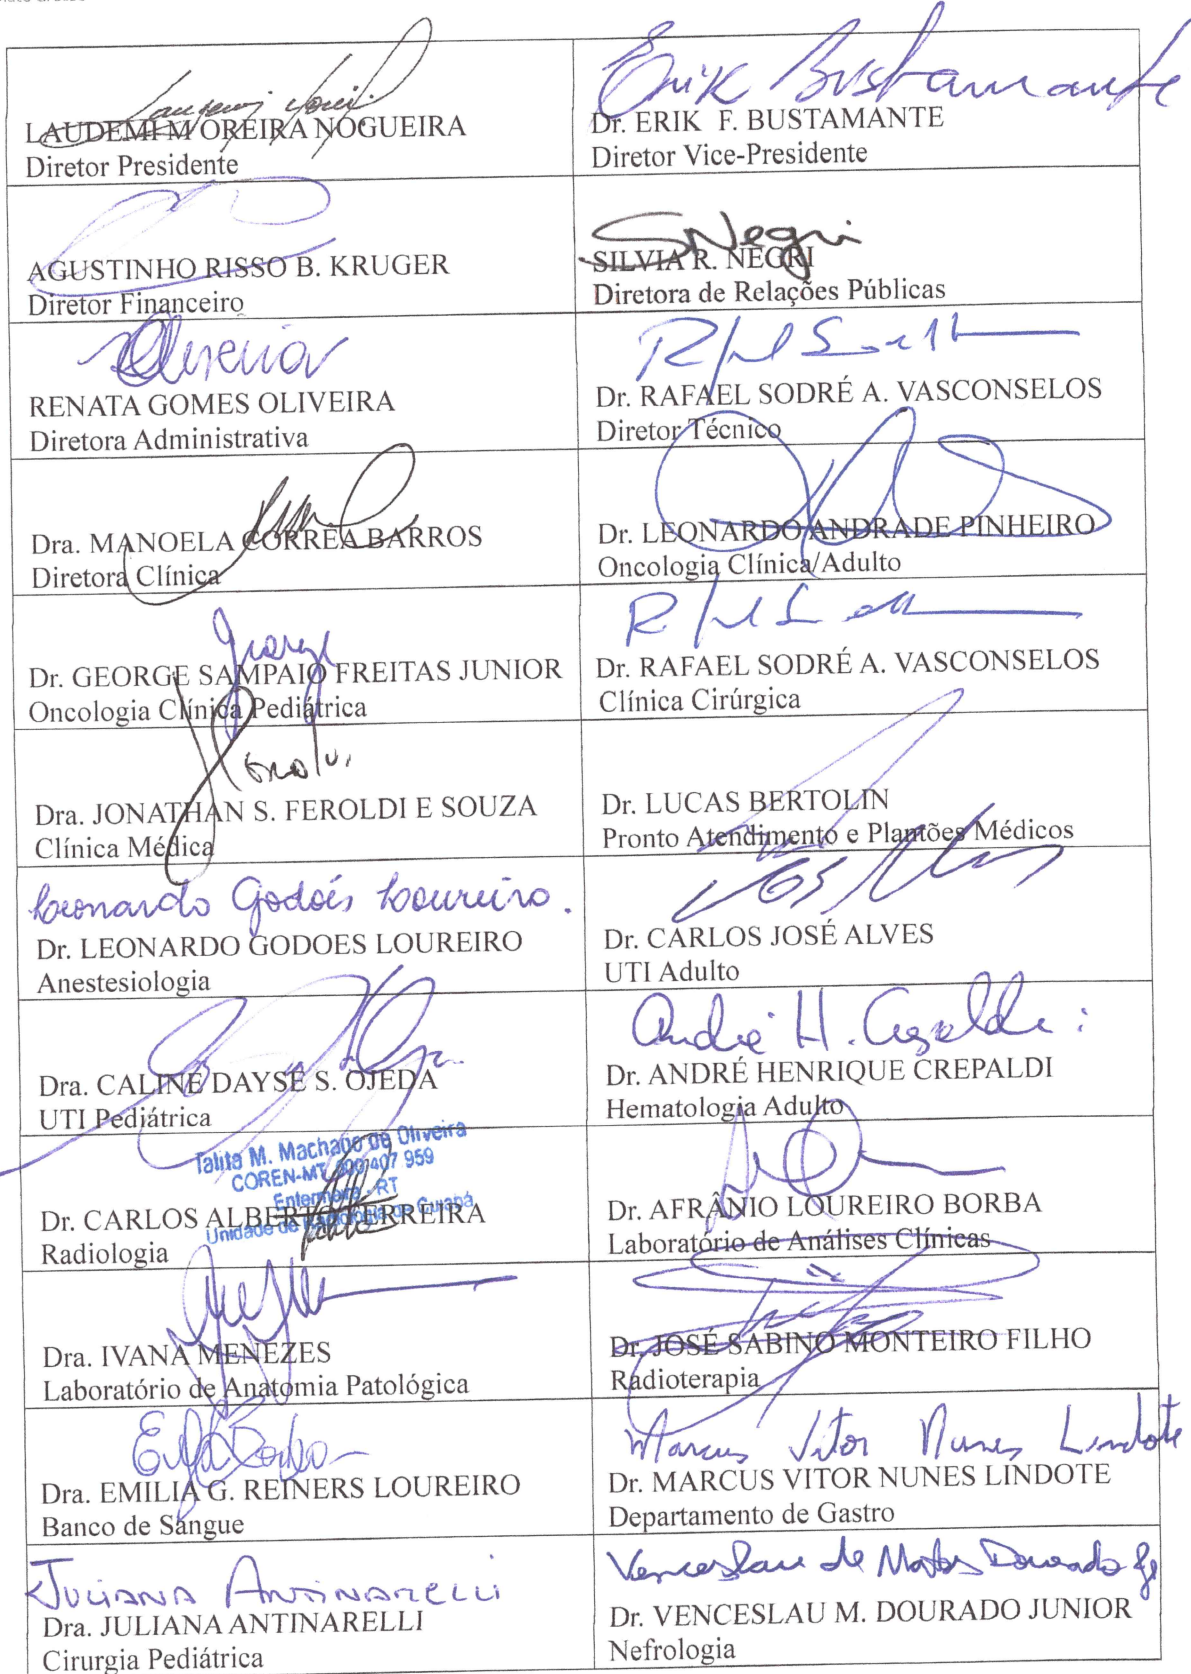 LAUDEMI MOREIRA NOGUEIRA
Diretor Presidente
Erik Bustamante
Dr. ERIK F. BUSTAMANTE
Diretor Vice-Presidente
AGUSTINHO RISSO B. KRUGER
Diretor Financeiro
SNegri
SILVIA R. NEGRI
Diretora de Relações Públicas
Oliveira
RENATA GOMES OLIVEIRA
Diretora Administrativa
Dr. RAFAEL SODRÉ A. VASCONSELOS
Diretor Técnico
Dra. MANOELA CORREA BARROS
Diretora Clínica
Dr. LEONARDO ANDRADE PINHEIRO
Oncologia Clínica/Adulto
George
Dr. GEORGE SAMPAIO FREITAS JUNIOR
Oncologia Clínica Pediátrica
Dr. RAFAEL SODRÉ A. VASCONSELOS
Clínica Cirúrgica
Dra. JONATHAN S. FEROLDI E SOUZA
Clínica Médica
Dr. LUCAS BERTOLIN
Pronto Atendimento e Plantões Médicos
Leonardo Godoés Loureiro.
Dr. LEONARDO GODOES LOUREIRO
Anestesiologia
Dr. CARLOS JOSÉ ALVES
UTI Adulto
Dra. CALINE DAYSE S. OJEDA
UTI Pediátrica
André H. Crepaldi
Dr. ANDRÉ HENRIQUE CREPALDI
Hematologia Adulto
Talita M. Machado de Oliveira
COREN-MT 407 959
Enfermeira - RT
Unidade de Radiologia de Cuiabá
Dr. CARLOS ALBERTO FERREIRA
Radiologia
Dr. AFRÂNIO LOUREIRO BORBA
Laboratório de Análises Clínicas
Dra. IVANA MENEZES
Laboratório de Anatomia Patológica
Dr. JOSÉ SABINO MONTEIRO FILHO
Radioterapia
Dra. EMILIA G. REINERS LOUREIRO
Banco de Sangue
Marcus Vitor Nunes Lindote
Dr. MARCUS VITOR NUNES LINDOTE
Departamento de Gastro
JULIANA ANTINARELLI
Dra. JULIANA ANTINARELLI
Cirurgia Pediátrica
Venceslau de Matos Dourado Jr
Dr. VENCESLAU M. DOURADO JUNIOR
Nefrologia